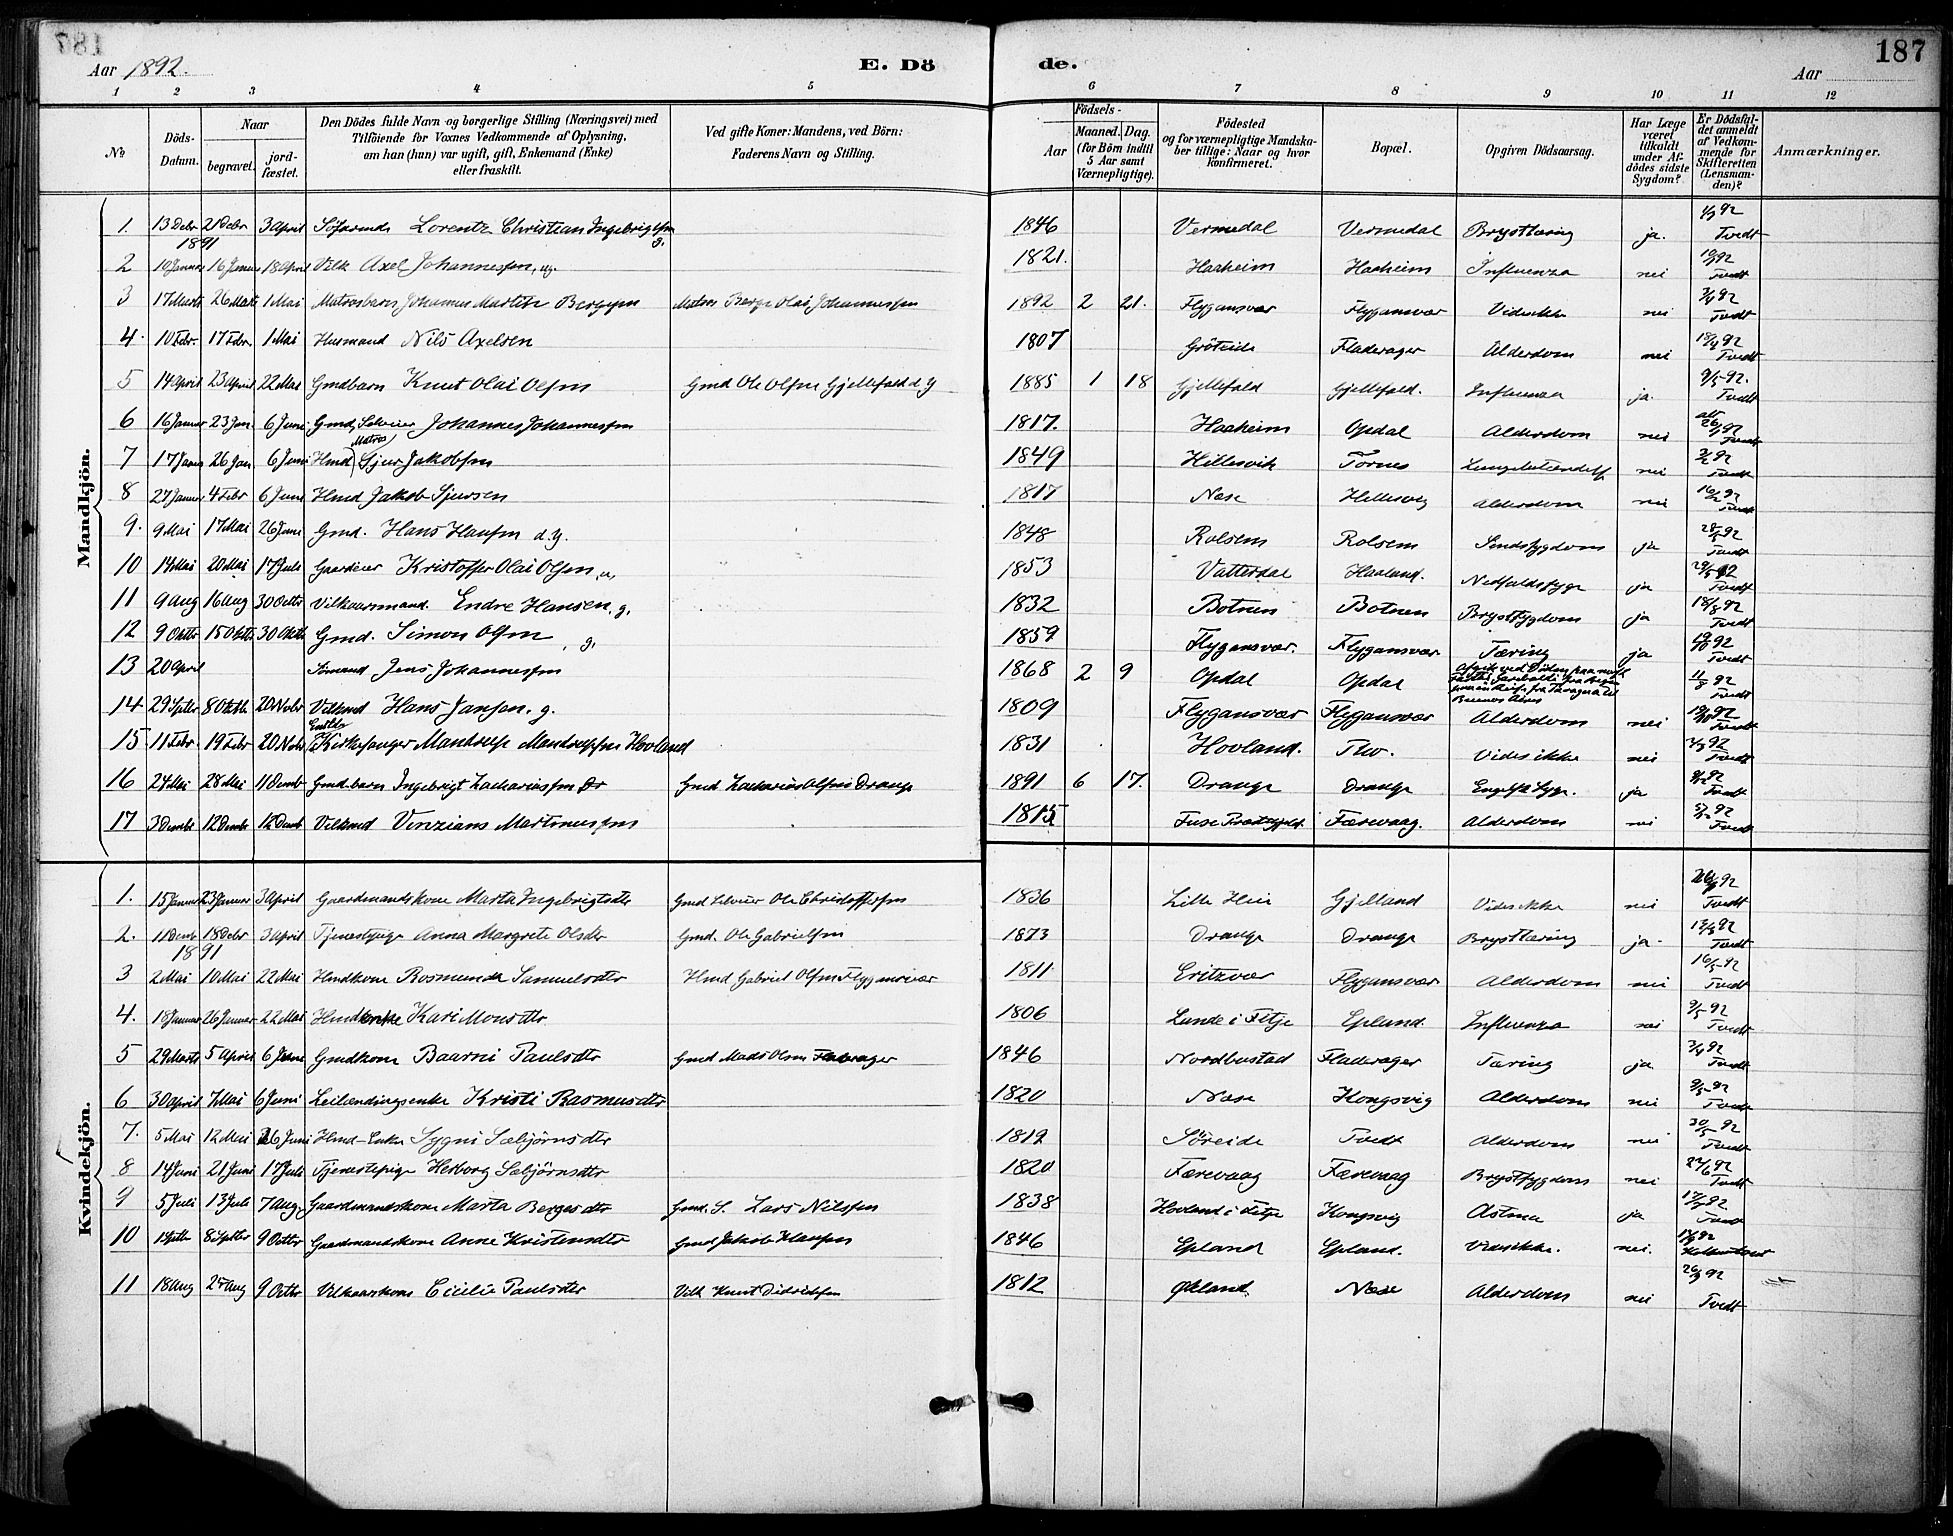 187
Aar 1892.
E. Dö de.
Aar
1 2 3 4 5 6 7 8 9 10 11 12
No
Döds-Datum.
Naar
begravet.
jord-fæstet.
Den Dödes fulde Navn og borgerlige Stilling (Næringsvei) med
Tilföiende for Voxnes Vedkommende af Oplysning,
om han (hun) var ugift, gift, Enkemand (Enke)
eller fraskilt.
Ved gifte Koner: Mandens, ved Börn:
Faderens Navn og Stilling.
Födsels-
Aar
Maaned. Dag.
(for Börn indtil
5 Aar samt
Værnepligtige).
Födested
og for værnepligtige Mandska-
ber tillige: Naar og hvor
konfirmeret.
Bopæl.
Opgiven Dödsaarsag.
Har Læge
været
tilkaldt
under Af-
dödes sidste
Sygdom?
Er Dödsfal-
det anmeldt
af Vedkom-
mende for
Skifteretten
(Lensman-
den)?
Anmærkninger.
Mandkjön.
1 13 Debr 1891 21 Debr 3 April Lorentz Christian Ingebrigtsen g. 1846 Vermedal Vermedal Brysttæring ja. Tvedt
2 10 Januar 16 Januar 18 April Vilk Axel Johannessen, ug. 1821. Haaheim Haaheim Influenza nei Tvedt
3 17 Marts 26 Marts 1 Mai Matrosbarn Johannes Martin Bergesen Matros Berge Olai Johannessen 1892 2 21. Flygansvær Flygansvær Vides ikke nei Tvedt
4. 10 Febr. 17 Febr. 1 Mai Husmand Nils Axelsen 1807 Gröteide Fladerager Alderdom nei Tvedt
5 14 April 23 April 22 Mai Gmdbarn Knut Olai Olsen Gmd Ole Olsen Gjellefald d.y 1885 1 18 Gjellefald Gjellefald. Influenza ja. 9/5-92. Tvedt
6 16 Januar 23 Jan. 6 Juni Gmd, Selveier Johannes Johannessen 1817. Haaheim Opdal Alderdom nei Tvedt
7 17 Januar 26 Jan. 6 Juni Hmd (Matros) Sjur Jakobsen 1849 Hillesvik Tornes Lungebetændelse nei Tvedt
8 27 Januar 4 Febr 6 Juni Hmd Jakob Sjursen 1817 Næse Hellesvig Alderdom nei Tvedt
9. 9 Mai 17 Mai 26 Juni Gmd. Hans Hansen d.y. 1848 Rolsem Rolsem Sindssygdom ja Tvedt
10 14 Mai 20 Mai 17 Juli Gaardeier Kristoffer Olai Olsen 1853 Vatterdal Haaland. Nedfaldssyge ja Tvedt
11 9 Aug 16 Aug 30 Octbr Vilkaarsmand. Endre Hansen, g. 1832 Botnen Botnen Brystsygdom ja 18/8 92 Tvedt
12 9 Octbr 15 Octbr 30 Oktbr Gmd. Simon Olsen, g. 1859 Flygansvær. Flygansvær Tæring ja Tvedt
13 20 April Sömand Jens Johannessen 1868 2 9 Opdal Opdal 11/8 92 Tvedt
14 29 Septbr 8 Oktbr. 20 Novbr Vilkmd Hans Jansen. g. 1809 Flygansvær Flygansvær Alderdom nei Tvedt
15 11 Febr. 19 Febr 20 Novbr Kirkesanger Mandrup Mandrupsen Hovland 1831 Hovland. Vides ikke nei Tvedt
16 24 Mai 28 Mai 11 Dembr Gmd.barn Ingebrigt Zachariassen Dr Gmd Zacharias Olsen Drange 1891 6 17. Drange Drange Engelsk Syge. ja Tvedt
17 3 Dembr 12 Dembr 12 Dembr Vilkmd Vinzians Martinussen 1815 Fuse Færevaag. Alderdom nei Tvedt
Kvindekjön.
1. 15 Januar 23 Januar 3 April Gaardmandskone Marta Ingebrigtsdtr Gmd Selveier Ole Christoffersen 1836 Lille Hei Gjelland Vides ikke nei Tvedt
2. 11 Decbr 1891 18 Debr 3 April Tjenestepige Anna Margrete Olsdtr Gmd. Ole Gabrielsen 1873 Drange Drange Brysttæring ja. Tvedt
3 2 Mai 10 Mai 22 Mai Hmdkone Rosmunda Samuelsdtr Hmd Gabriel Olsen Flygansvær 1811 Eritzvær Flygansvær Alderdom nei 16/5-92 Tvedt
4. 18 Januar 26 Januar 22 Mai Hmdenke Kari Monsdtr 1806 Lunde i Fitje Epland. Influenza nei 9/5 92 Tvedt
5 29 Marts 5 April 6 Juni Gmdkone Baarni Paulsdtr Gmd Mads Olsen Fladerager 1846 Nordbustad Fladerager Tæring ja Tvedt
6 30 April 7 Mai 6 Juni Leilændingsenke Kristi Rasmusdtr 1820 Næse Kongsvig Alderdom nei Tvedt
7. 5 Mai 12 Mai 26 Juni Hmd-Enke Sygni Sæbjörnsdtr 1812 Söreide Tvedt Alderdom nei 20/5 92 Tvedt
8 14 Juni 21 Juni 17 Juli Tjenestepige Herborg Sæbjörnsdtr 1820 Færevaag Færevaag Brystsygdom nei Tvedt
9 5 Juli 13 Juli 7 Aug. Gaardmandskone Marta Bergesdtr Gmd. S. Lars Nilssen 1838 Hovland i Fitje Kongsvig Astma ja Tvedt
10 1 Septbr 8 Septbr 9 Octbr Gaardmandskone Anne Kristensdtr Gmd Jakob Hansen 1846 Epland Epland. Vides ikke. nei.
11 18 Aug 25 Aug 9 Octbr Vilkaarskone Cicilie Paulsdtr Vilk Knut Didriksen 1812 Økland Næse Alderdom nei Tvedt